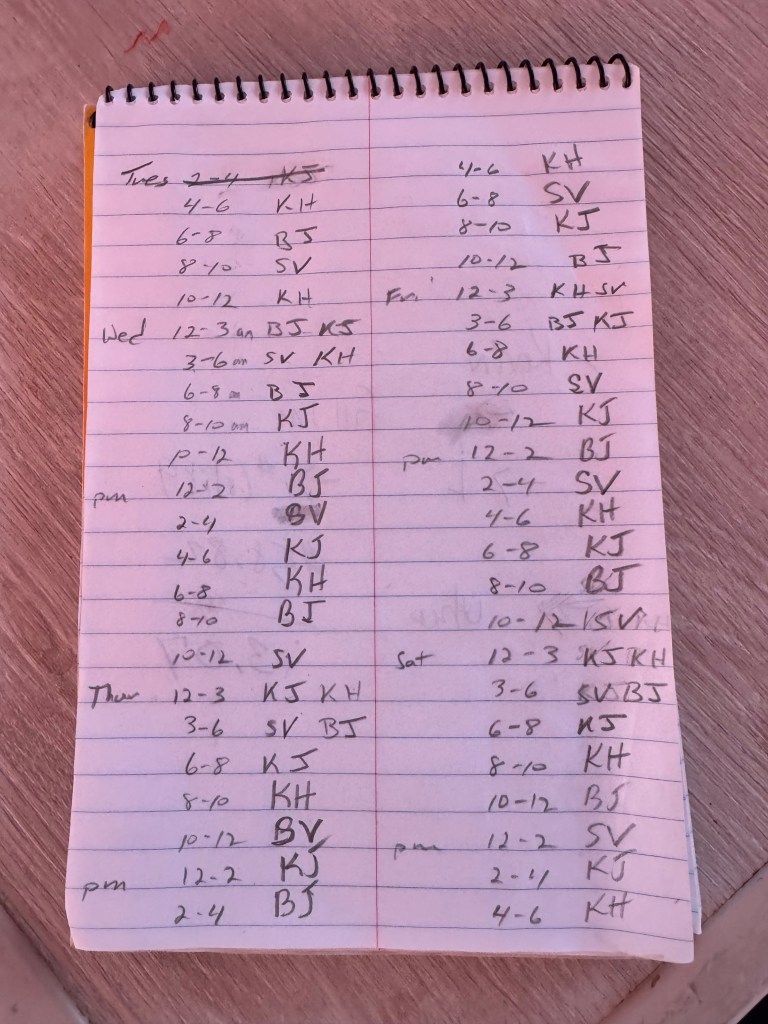 Tues 2-4 KJ
4-6 KH
6-8 BJ
8-10 SV
10-12 KH
Wed 12-3 am BJ KJ
3-6 am SV KH
6-8 am BJ
8-10 am KJ
10-12 KH
pm 12-2 BJ
2-4 SV
4-6 KJ
6-8 KH
8-10 BJ
10-12 SV
Thur 12-3 KJ KH
3-6 SV BJ
6-8 KJ
8-10 KH
10-12 BV
pm 12-2 KJ
2-4 BJ
4-6 KH
6-8 SV
8-10 KJ
10-12 BJ
Fri 12-3 KH SV
3-6 BJ KJ
6-8 KH
8-10 SV
10-12 KJ
pm 12-2 BJ
2-4 SV
4-6 KH
6-8 KJ
8-10 BJ
10-12 SV
Sat 12-3 KJ KH
3-6 SV BJ
6-8 KJ
8-10 KH
10-12 BJ
pm 12-2 SV
2-4 KJ
4-6 KH